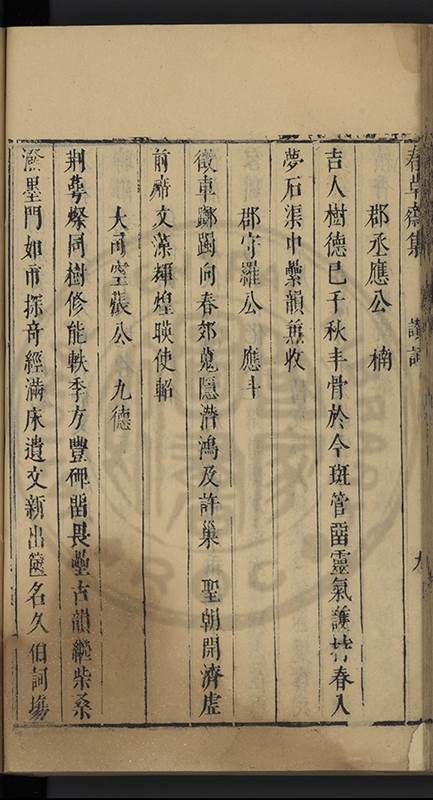 春草齋集 讚詞 九
郡丞應公 楠
吉人樹德已千秋丰骨於今斑管留靈氣護持春入
夢石渠中壘韻兼收
郡守羅公 應斗
徵車躑躅向春郊蒐隱潛鴻及許巢 聖朝開濟虛
前席文藻輝煌暎使軺
大司空張公 九德
荆蕚燦同樹修能軼季方豐碑留畏壘古韻繼柴桑
潑墨門如市探奇經滿床遺文新出篋名久伯詞塲